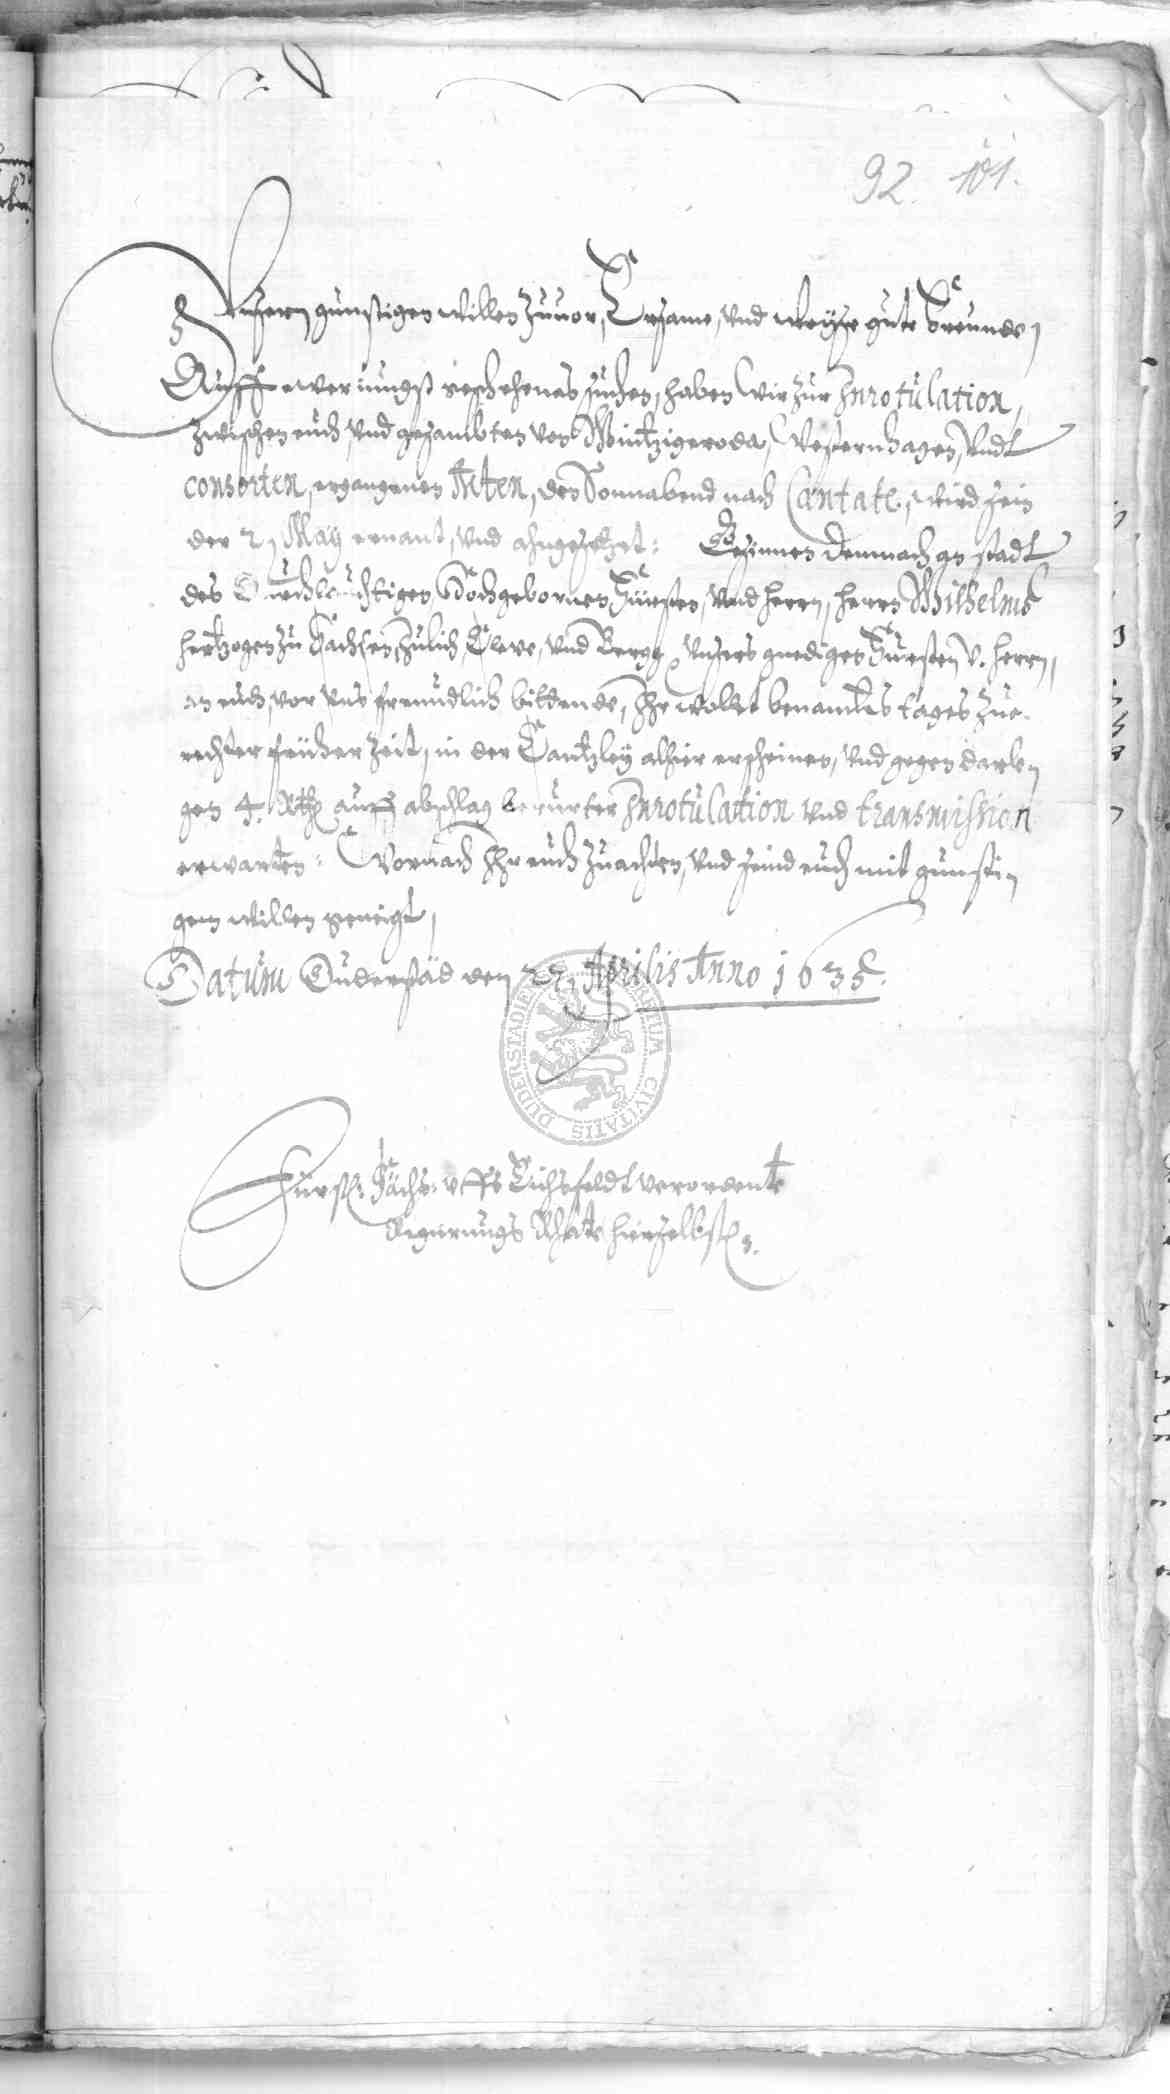 92. 101.
Unsern gunstigen willen zuuor, Ersame, und weyse gute Freunde,
Auff ewer iungst geschehenes suchen, haben Wir zur Inrotulation,
zwischen euch und gesambten von Wintzigeroda, Westernhagen, Undt
consorten, ergangenen Acten, den Sonnabend nach Cantate, wird sein
der 2, May ernant, und angesetzet: Gesinnen demnach an stadt
des Durchlauchtigen, Hochgebornen Fürsten, und Herrn, Herrn Wilhelms
Hertzogen zu Sachsen, Jülich, Cleve, und Bergk, unsers gnedigen Fürsten v. Herrn,
an euch, vor uns freundlich bittende, Ihr wollet benambtes tages zue
rechter früher Zeit, in der Cantzley alhier erscheinen, und gegen darle,
gen 4. Rth auff abschlag berurter Inrotulation und transmission
erwarten: Wornach Ihr euch zuachten, und seind euch mit gunsti,
gem willen geneigt,
Datum Duderstad den 27, Aprilis Anno 1635.
DUDERSTADIENSIS CIVITATIS
Fürstl: Sächs: uffs Eichsfeldt verordente
Regierungs Rhäte hierselbst.